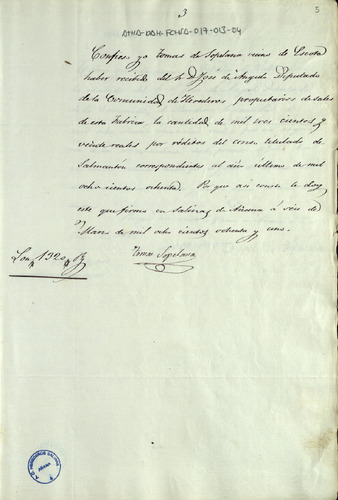 3
5
ATHA-DAH-FCHSA-017-013-04
Confieso yo Tomas de Sopelana vecino de Escota
haber recibido del Sr. D. José de Angulo Diputado
de la Comunidad de Herederos propietarios de sales
de esta Fabrica la cantidad de mil tres cientos y
veinte reales por réditos del censo titulado de
Salmantón correspondientes al año último de mil
ocho cientos ochenta. Por que asi conste le doy
este que firmo en Salinas de Añana á seis de
Marzo de mil ocho cientos ochenta y uno.
Son 1320 rs
Tomas Sopelana
AÑANA